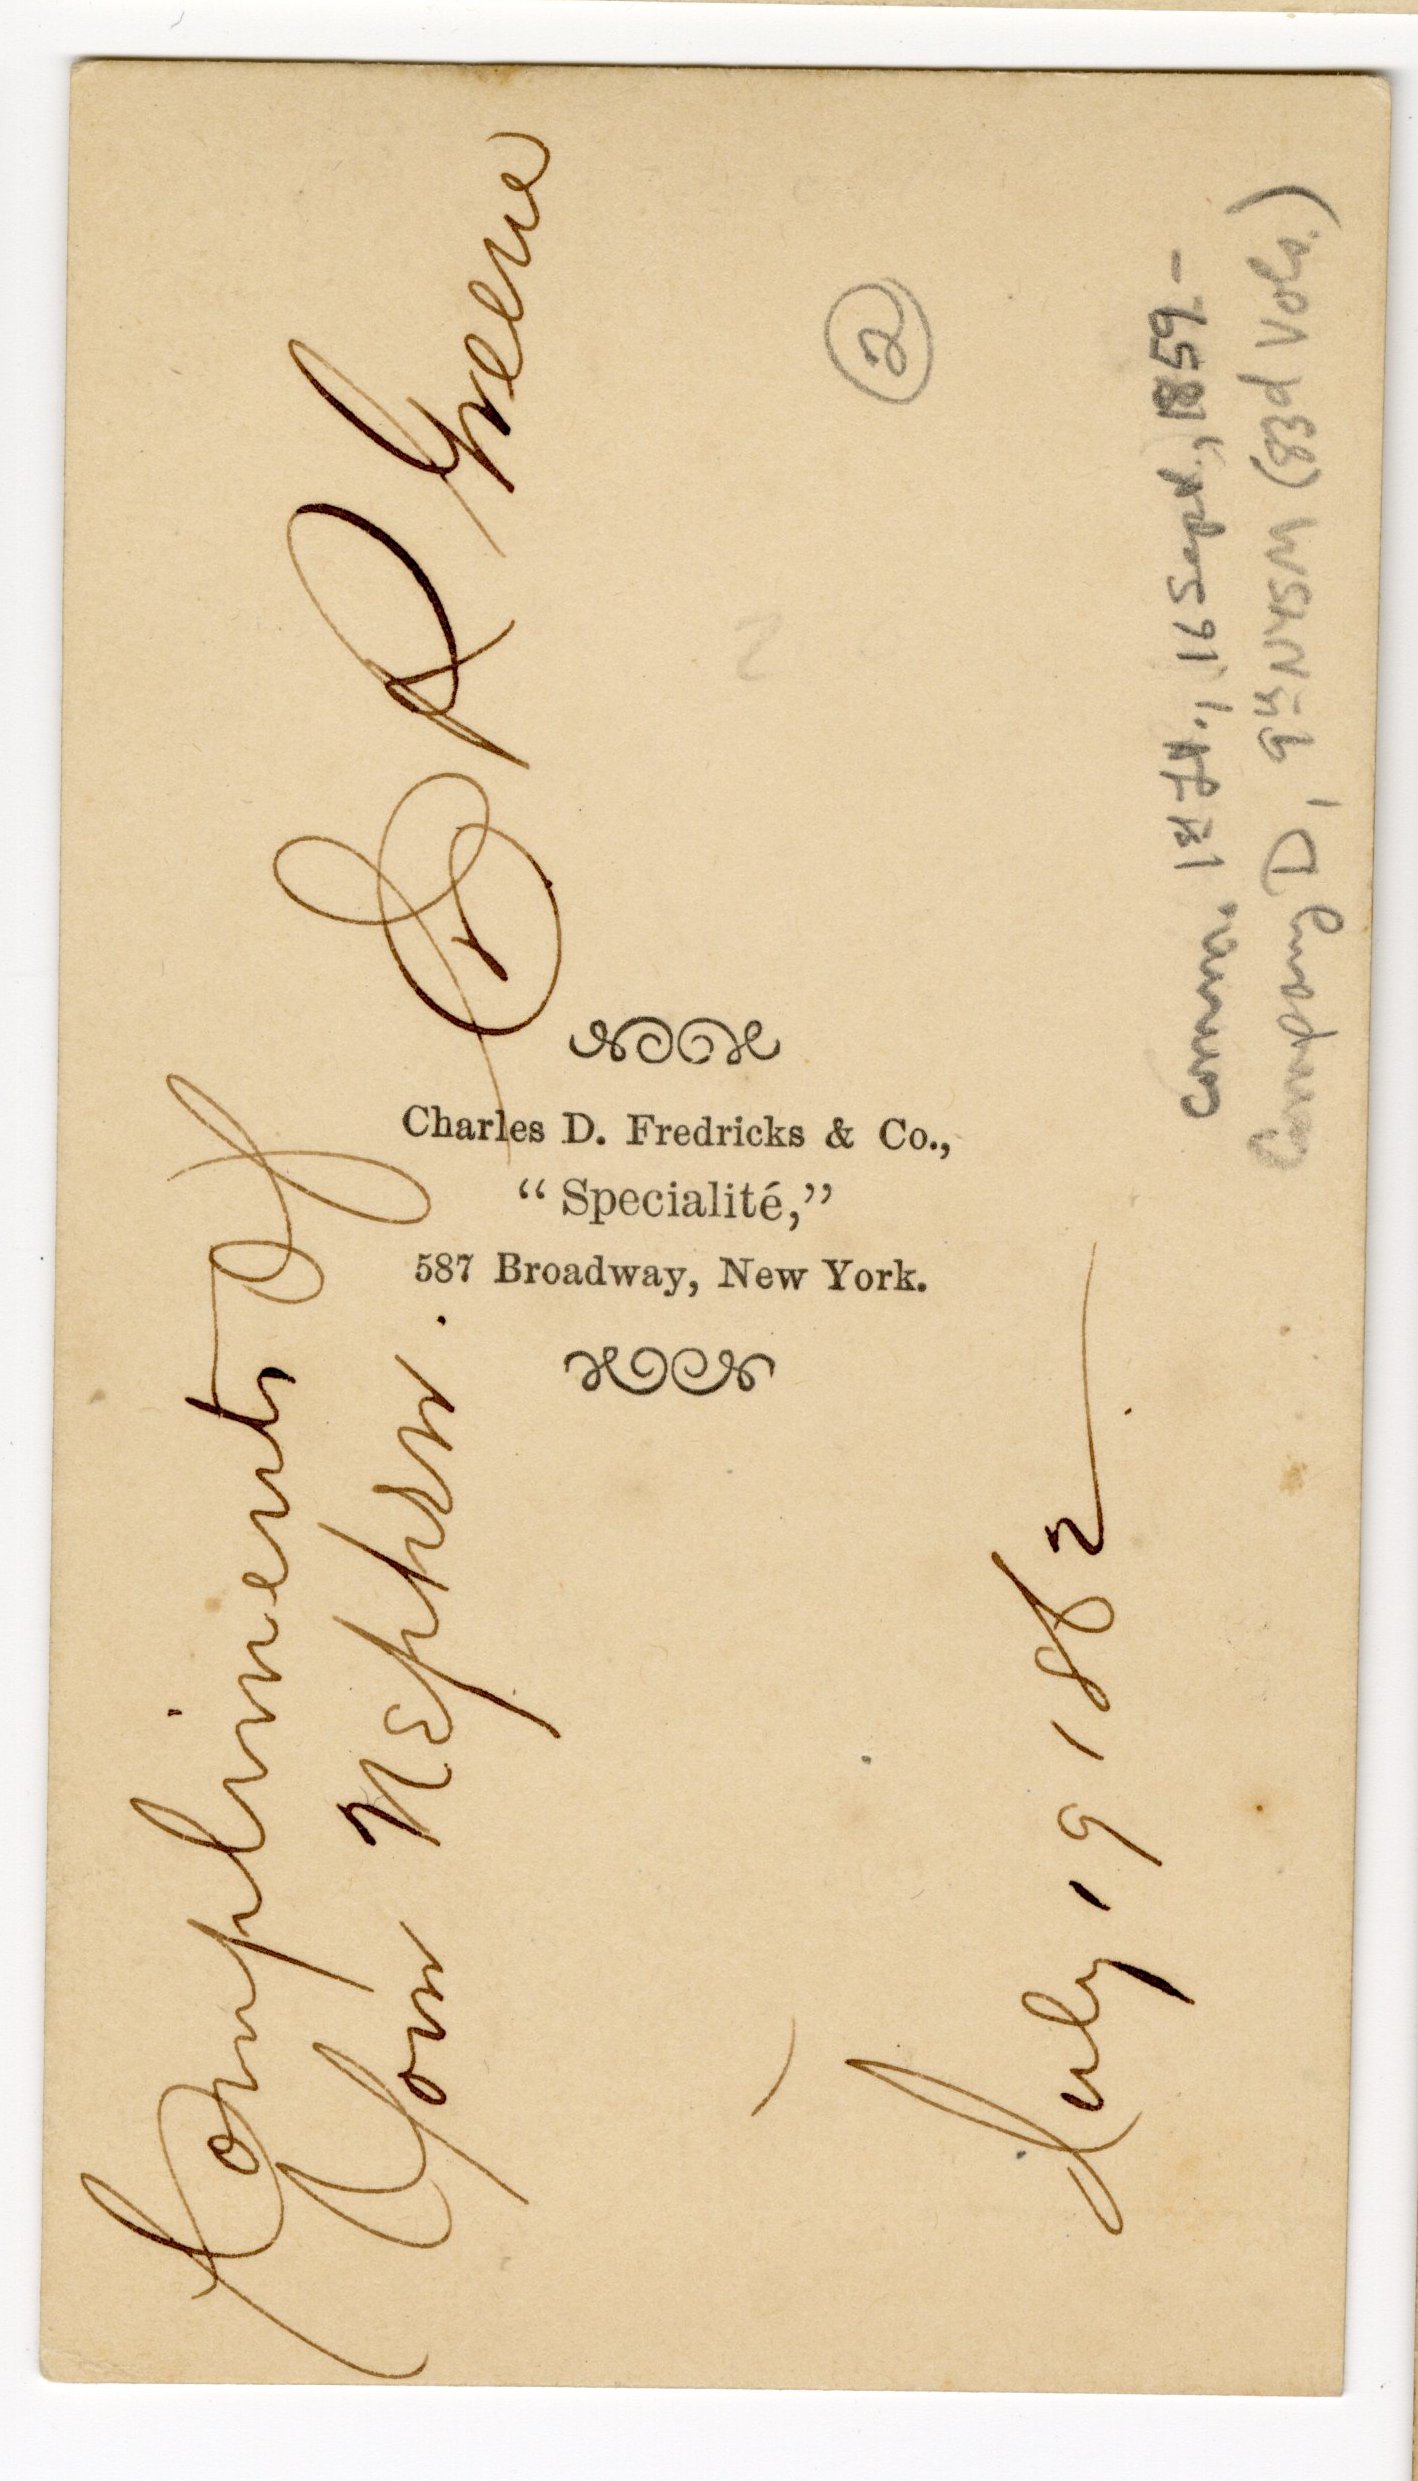 Compliments of
Your Nephew. E R Greene
Charles D. Fredricks & Co.,
“Specialité,”
587 Broadway, New York.
July 19 1882
2
2
Comm. 1st Lt., 16 Sept., 1859-
Company D, 9th NYSM (83d Vols.)